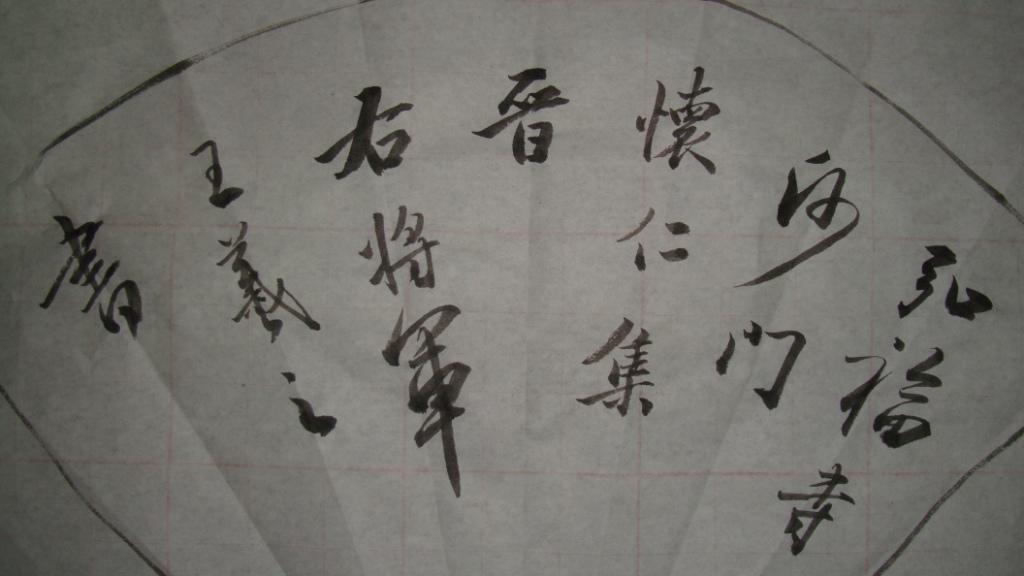 弘福寺
沙門
懷仁集
晉
右將軍
王羲之
書